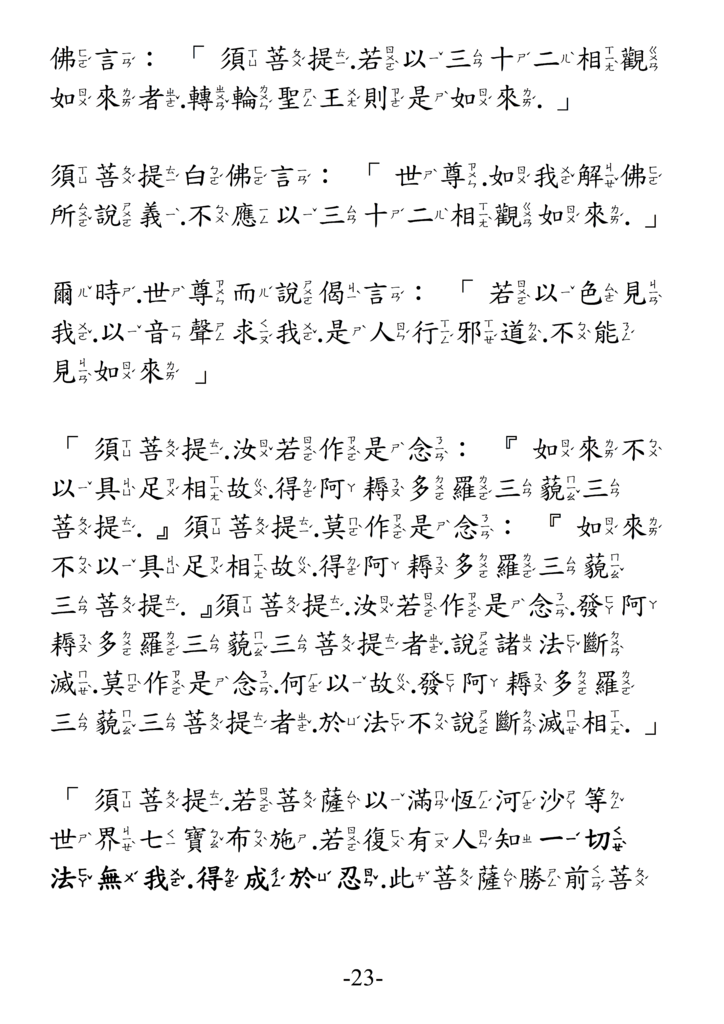 佛言：「須菩提.若以三十二相觀
如來者.轉輪聖王則是如來.」
須菩提白佛言：「世尊.如我解佛
所說義.不應以三十二相觀如來.」
爾時.世尊而說偈言：「若以色見
我.以音聲求我.是人行邪道.不能
見如來」
「須菩提.汝若作是念：『如來不
以具足相故.得阿耨多羅三藐三
菩提.』須菩提.莫作是念：『如來
不以具足相故.得阿耨多羅三藐
三菩提.』須菩提.汝若作是念.發阿
耨多羅三藐三菩提者.說諸法斷
滅.莫作是念.何以故.發阿耨多羅
三藐三菩提者.於法不說斷滅相.」
「須菩提.若菩薩以滿恆河沙等
世界七寶布施.若復有人知一切
法無我.得成於忍.此菩薩勝前菩
-23-